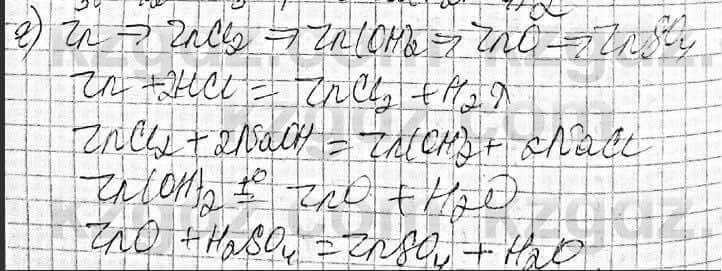 г) Zn → ZnCl₂ → Zn(OH)₂ → ZnO → ZnSO₄
Zn + 2HCl = ZnCl₂ + H₂↑
ZnCl₂ + 2NaOH = Zn(OH)₂ + 2NaCl
Zn(OH)₂ t°= ZnO + H₂O
ZnO + H₂SO₄ = ZnSO₄ + H₂O